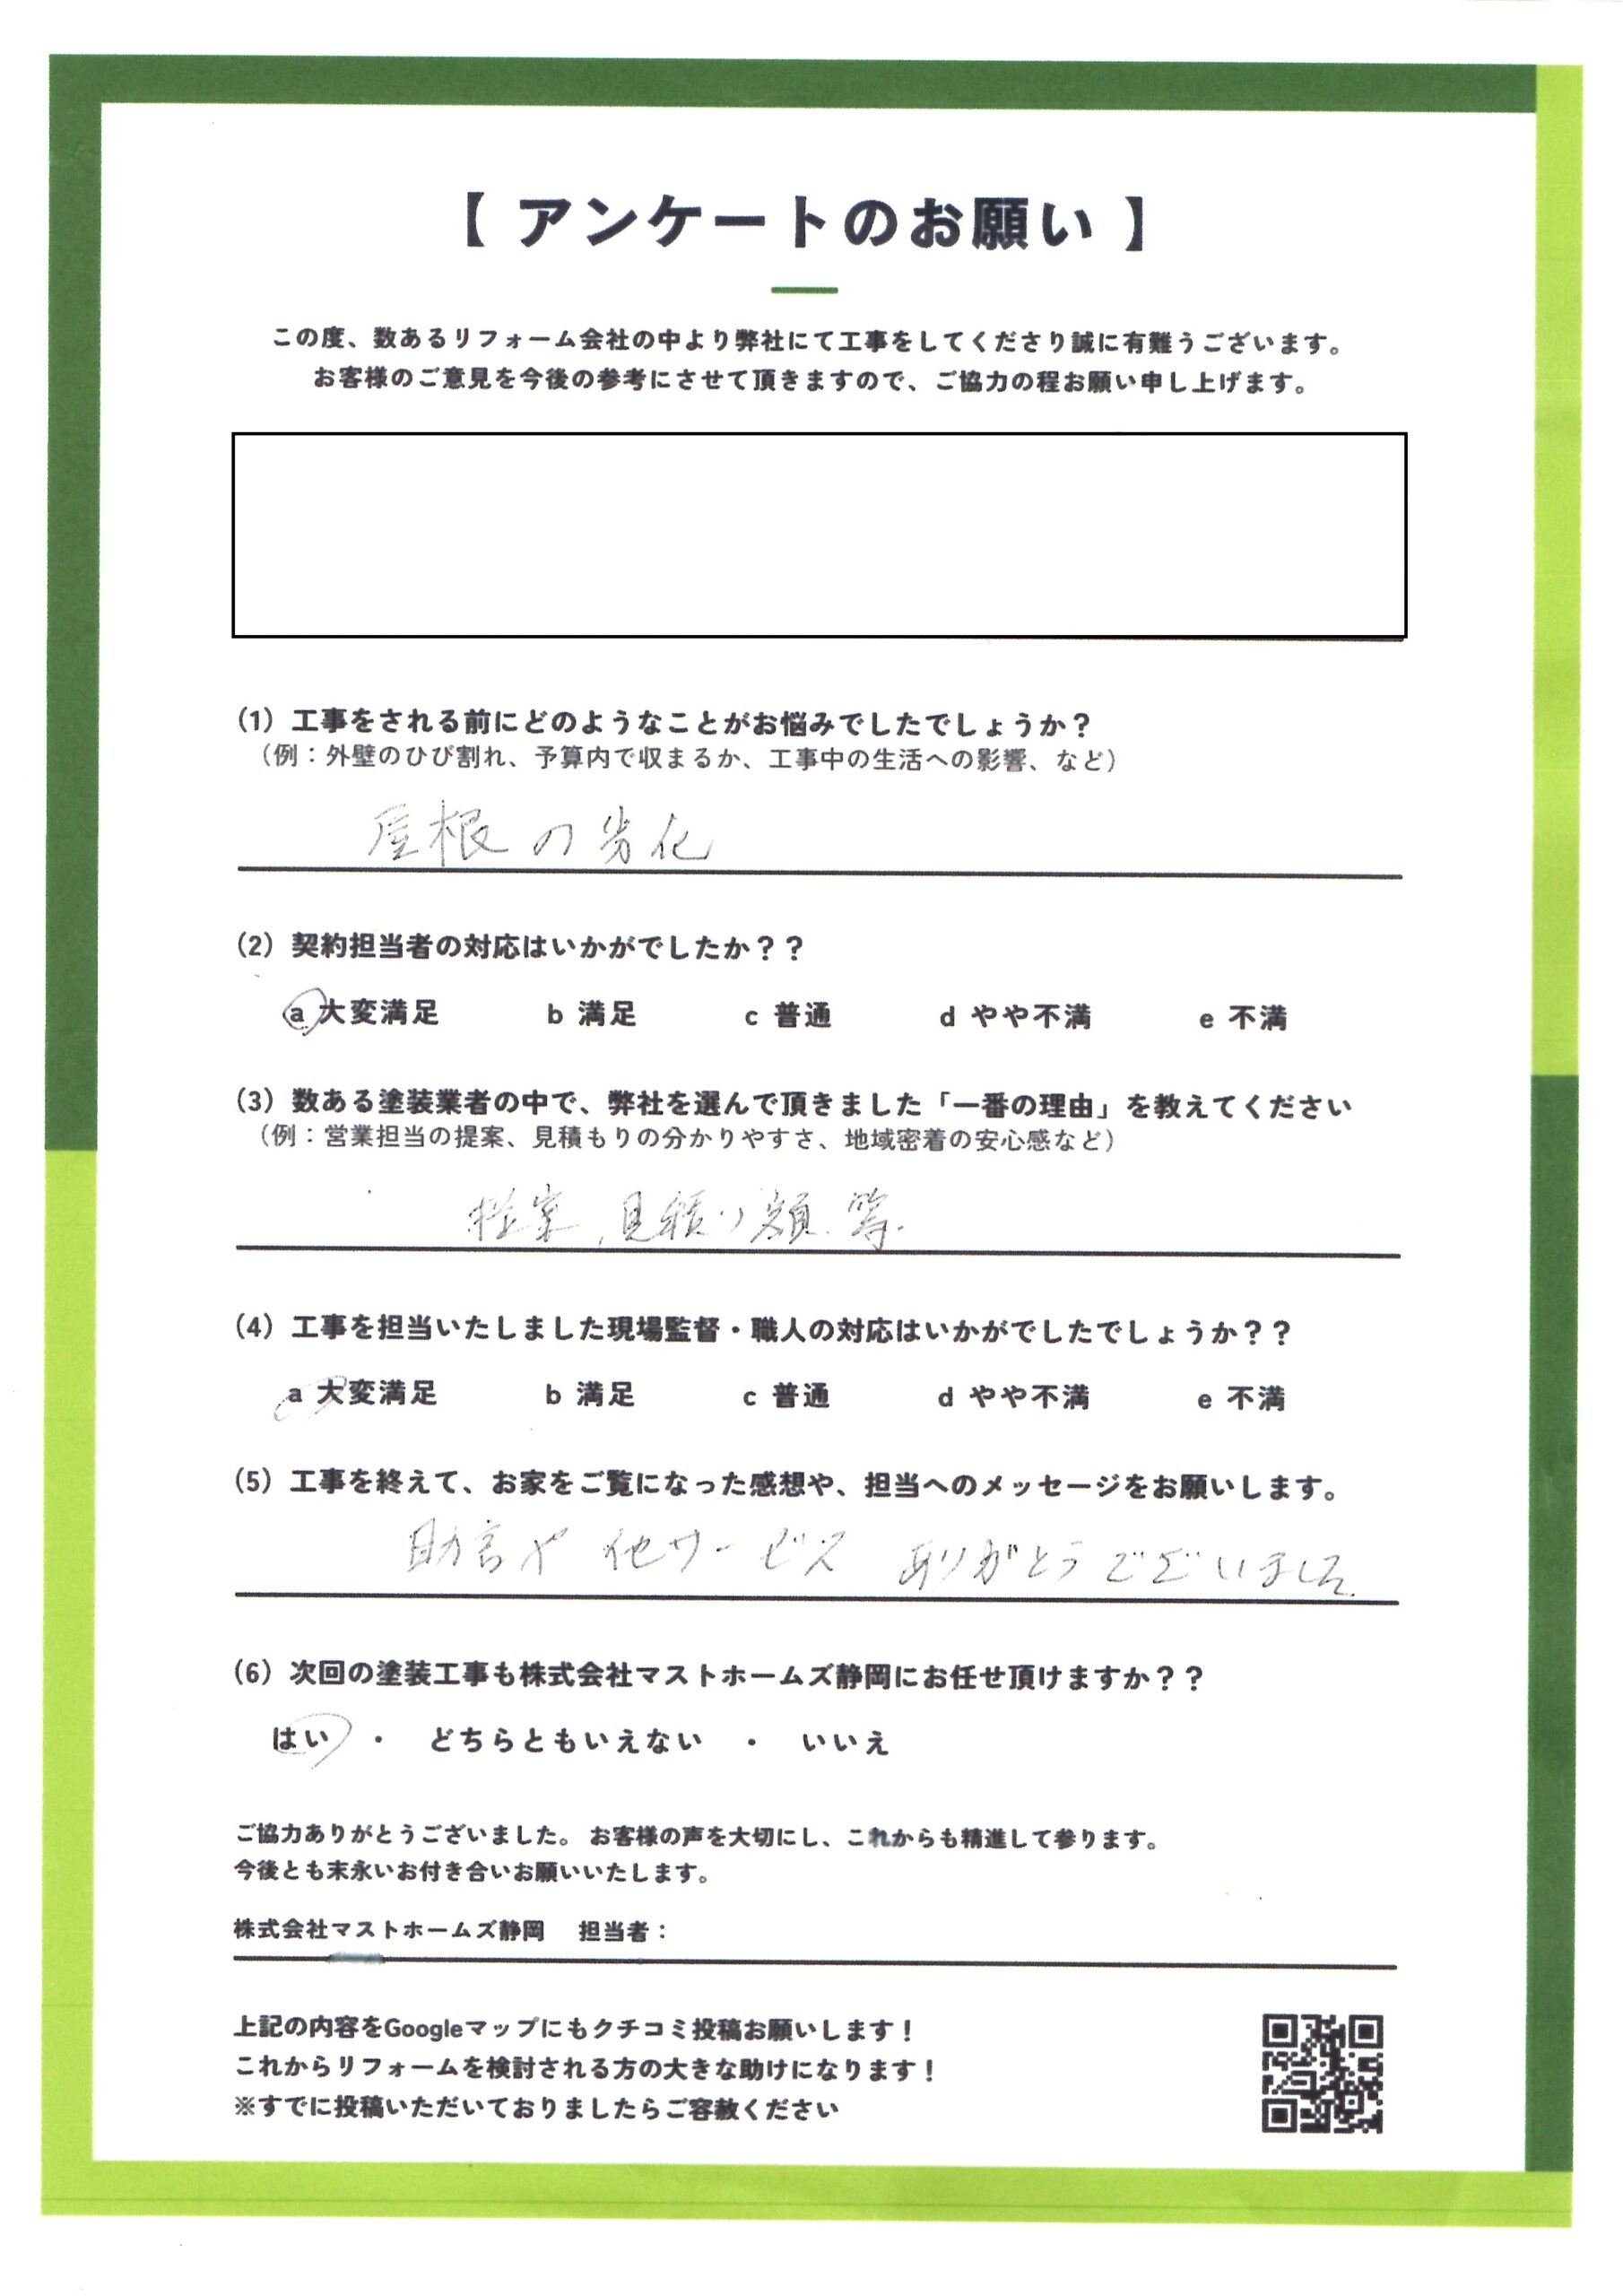 【 アンケートのお願い 】
この度、数あるリフォーム会社の中より弊社にて工事をしてくださり誠に有難うございます。
お客様のご意見を今後の参考にさせて頂きますので、ご協力の程お願い申し上げます。
(1) 工事をされる前にどのようなことがお悩みでしたでしょうか?
（例：外壁のひび割れ、予算内で収まるか、工事中の生活への影響、など）
屋根の劣化
(2) 契約担当者の対応はいかがでしたか??
a 大変満足 b 満足 c 普通 d やや不満 e 不満
(3) 数ある塗装業者の中で、弊社を選んで頂きました「一番の理由」を教えてください
（例：営業担当の提案、見積もりの分かりやすさ、地域密着の安心感など）
提案、見積り額、等.
(4) 工事を担当いたしました現場監督・職人の対応はいかがでしたでしょうか??
a 大変満足 b 満足 c 普通 d やや不満 e 不満
(5) 工事を終えて、お家をご覧になった感想や、担当へのメッセージをお願いします。
助言や 他サービス ありがとうございました.
(6) 次回の塗装工事も株式会社マストホームズ静岡にお任せ頂けますか??
はい ・ どちらともいえない ・ いいえ
ご協力ありがとうございました。 お客様の声を大切にし、これからも精進して参ります。
今後とも末永いお付き合いお願いいたします。
株式会社マストホームズ静岡 担当者：
上記の内容をGoogleマップにもクチコミ投稿お願いします！
これからリフォームを検討される方の大きな助けになります！
※すでに投稿いただいておりましたらご容赦ください